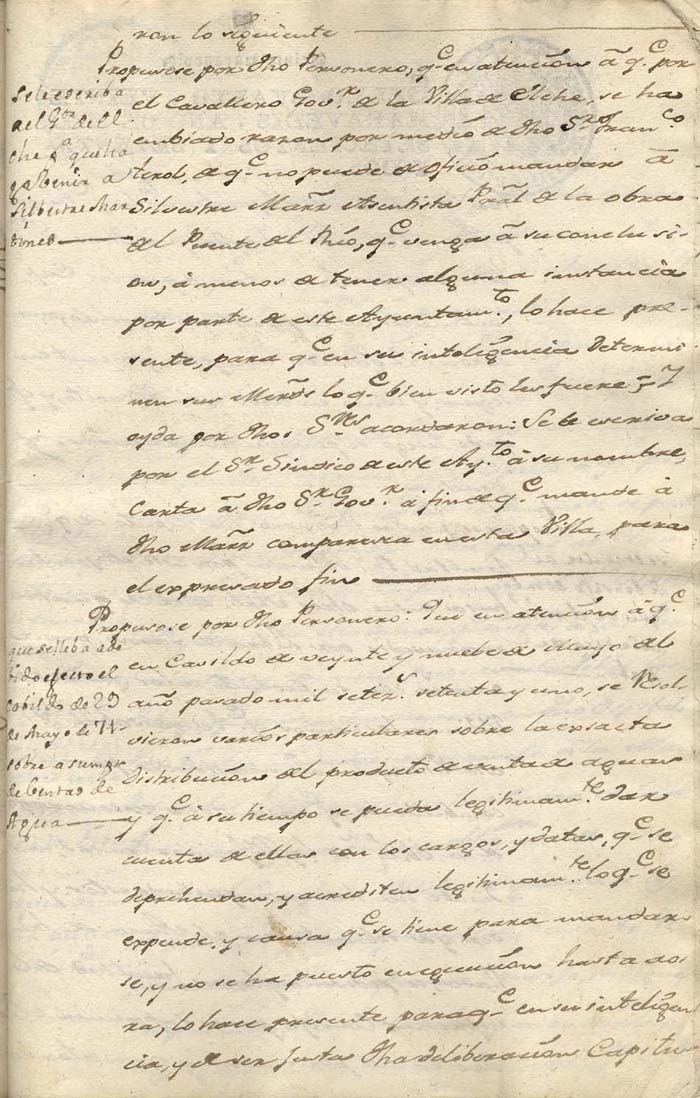 ron lo sigũiente
Propusose por dho Personero, q.e en atencion â q.e por
el Cavallero Gov.r de la Villa de Elche, se ha
embiado razon por medio de dho S.r Fran.co
terol, de q.e no puede de oficio mandar â
Silvestre Marr Asentista Pral de la obra
del Puente del Rio, q.e venga â su conclusi-
on, â menos de tener alguna instancia
por parte de este Ayuntam.to, lo hace pre-
sente, para q.e en su inteligencia determi-
nen sus Merds lo q.e bien visto les fuere; Y
oyda por dhos S.res acordaron: Se le escriva
por el S.r Sindico de este Ay.to â su nombre,
Carta â dho S.r Gov.r â fin de q.e mande â
dho Marr comparesca en esta Villa, para
el expresado fin
Propusose por dho Personero: Que en atencion â q.e
en Cavildo de veynte y nuebe de Mayo del
año pasado mil setez.s setenta y uno, se resol-
vieron varios particulares sobre la exsacta
distribucion del producto de venta de aguas
y q.e â su tiempo se pueda legitimam.te dar
cuenta de ellas con los cargos, y datas, q.e se
deprehendan, y acrediten legitimam.te lo q.e se
expende, y causa q.e se tiene para mandar-
se, y no se ha puesto en egecucion hasta ao-
ra, lo hace presente para q.e en su inteligen-
cia, y de ser justa dha deliberacion Capitu-
se le escriba
al G.or de El
che p.a que ha
ga benir a
Silbestre Mar
tines
que se lleba a de
bido efecto el
cabildo de 29
de Mayo de 71
sobre asumpt
de bentas de
Agua